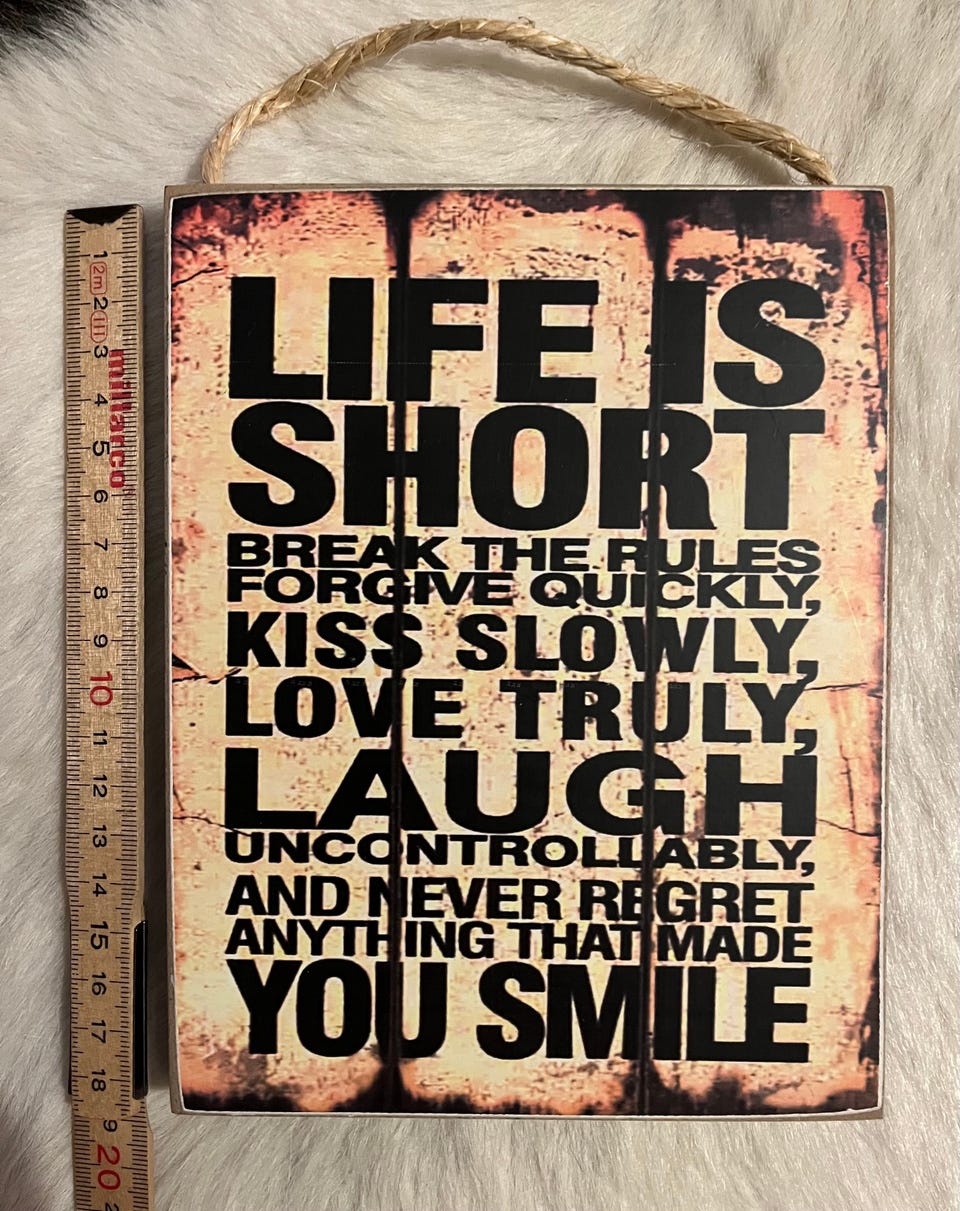 LIFE IS
SHORT
BREAK THE RULES
FORGIVE QUICKLY,
KISS SLOWLY,
LOVE TRULY,
LAUGH
UNCONTROLLABLY,
AND NEVER REGRET
ANYTHING THAT MADE
YOU SMILE
1
2m
2
III
3
4
5
6
7
8
9
10
11
12
13
14
15
16
17
18
9
20